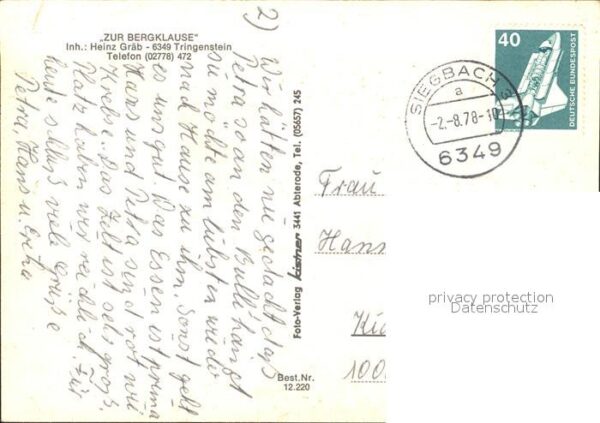 „ZUR BERGKLAUSE"
Inh.: Heinz Gräb - 6349 Tringenstein
Telefon (02778) 472
2)
Wir hätten nie gedacht daß
Petra so an den Bulli hängt
sie möchte am liebsten wieder
nach Hause zu ihm. Sonst geht
es uns gut. Das Essen ist prima
Hans und Petra sind rot wie
Krebse. Das Zelt ist sehr groß.
Platz haben wir reichlich. Für
heute schluß viele Grüße
Petra, Hans u.
Foto-Verlag kistner 3441 Abterode, Tel. (05657) 245
Best.Nr.
12.220
40
DEUTSCHE BUNDESPOST
SIEGBACH
a
-2.-8.78-10
6349
Frau
Hans
100
privacy protection
Datenschutz